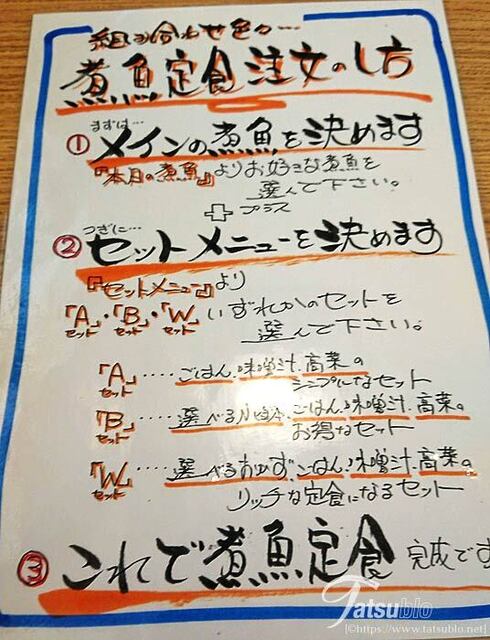 組み合わせ色々…
煮魚定食注文のし方
まずは…
①メインの煮魚を決めます
『本日の煮魚』よりお好きな煮魚を
選んで下さい。
＋プラス
つぎに…
②セットメニューを決めます
『セットメニュー』より
「Aセット」・「Bセット」・「Wセット」いずれかのセットを
選んで下さい。
「Aセット」‥‥ごはん、味噌汁、高菜の
シンプルなセット
「Bセット」‥‥選べる小鉢、ごはん、味噌汁、高菜の
お得なセット
「Wセット」‥‥選べるおかず、ごはん、味噌汁、高菜の
リッチな定食になるセット
③これで煮魚定食 完成です
Tatsublo
[©https://www.tatsublo.net]